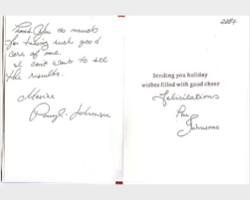 Thank You so much
for taking such good
care of me.
I can't wait to see
the results.
Maxine
Johnson
2284
Sending you holiday
wishes filled with good cheer
Felicitations
The
Johnsons